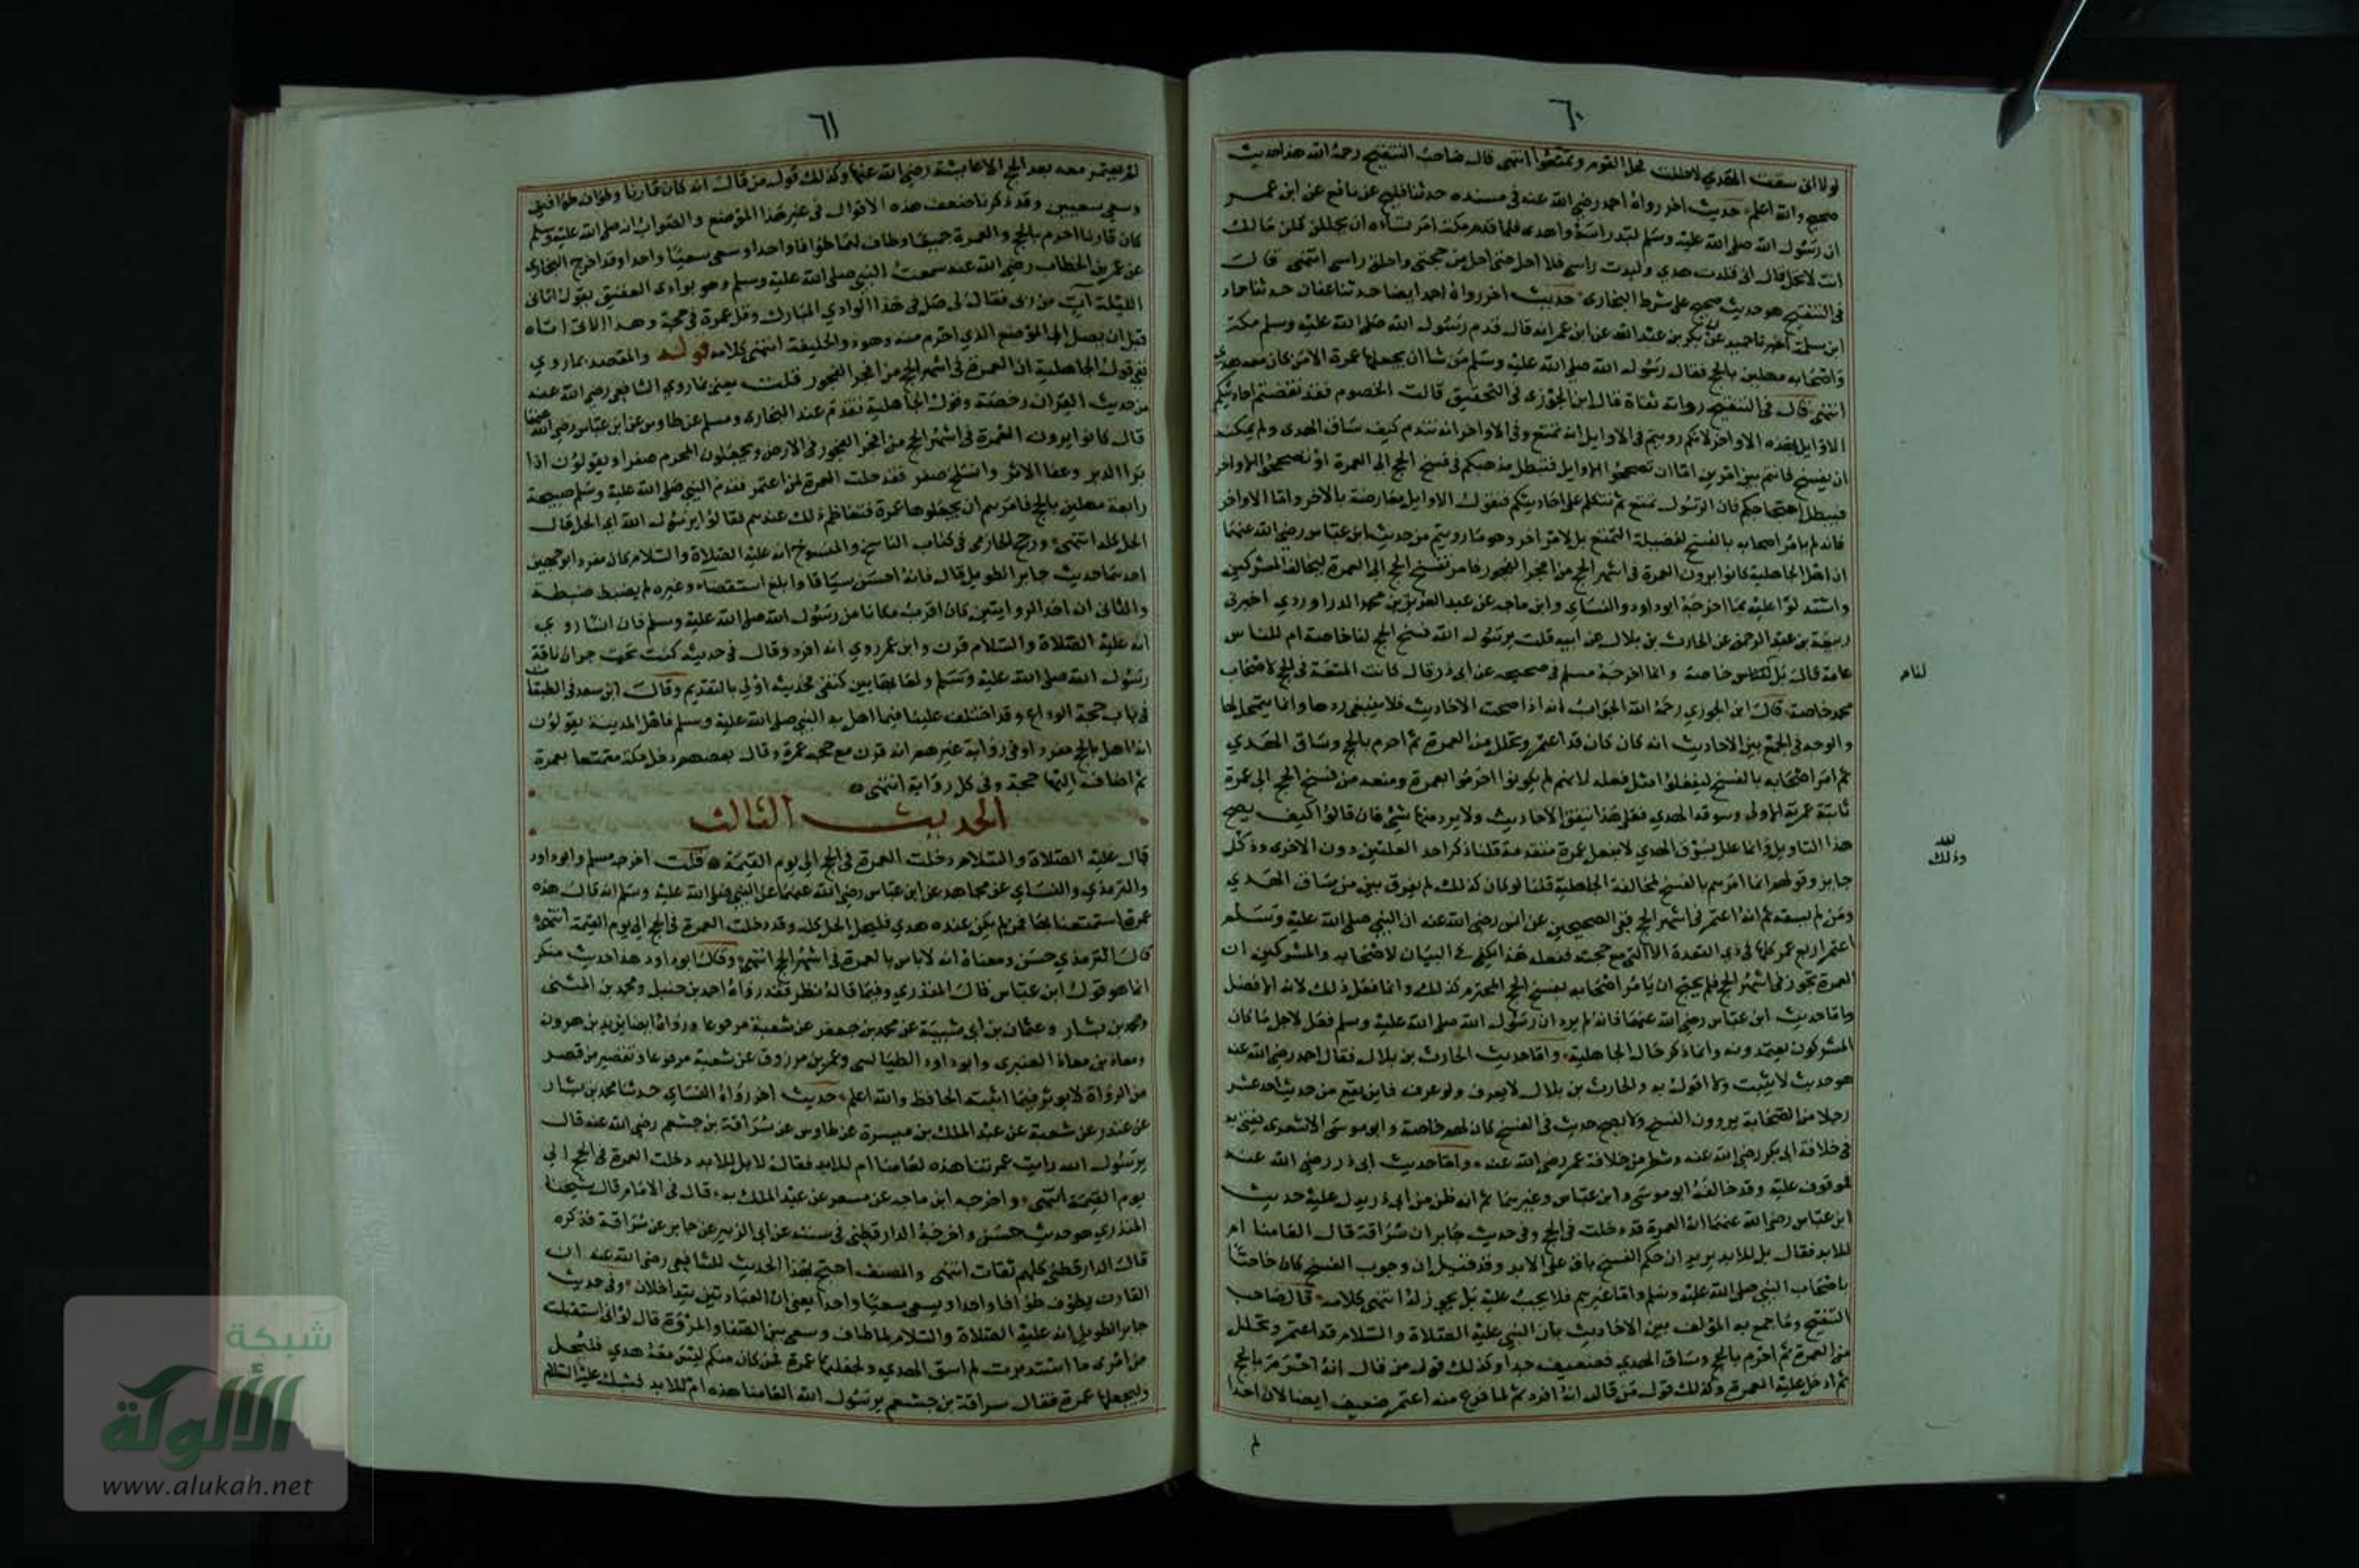 ٦٠
لولا اني سقت الهدي لاحللت فحل القوم وتمتعوا انتهى قال صاحب التنقيح رحمه الله هذا حديث
صحيح والله اعلم حديث اخر رواه احمد رضي الله عنه في مسنده حدثنا فليح عن نافع عن ابن عمر
ان رسول الله صلى الله عليه وسلم لبد راسه واهدى فلما قدم مكة امر نساءه ان يحللن قلن مالك
انت لا تحل قال اني قلدت هدي ولبدت راسي فلا احل حتى احل من حجتي واحلق راسي انتهى قال
في التنقيح هو حديث صحيح على شرط البخاري حديث اخر رواه احمد ايضا حدثنا عفان حدثنا حماد
ابن سلمة اخبرنا حميد عن بكر بن عبد الله عن ابن عمر انه قال قدم رسول الله صلى الله عليه وسلم مكة
واصحابه مهلين بالحج فقال رسول الله صلى الله عليه وسلم من شا ان يجعلها عمرة الا من كان معه هدي
انتهى قال في التنقيح رواته ثقاة قال ابن الجوزي في التحقيق قالت الخصوم فقد نقضتم احاديثكم
الاوايل بهذه الاواخر لانكم رويتم في الاوايل انه تمتع وفي الاواخر انه تندم كيف ساق الهدى ولم يمكنه
ان يفسخ فانتم بين امرين اما ان تصححوا الاوايل فتبطل مذهبكم في فسخ الحج الى العمرة او تصححوا الاواخر
فيبطل احتجاجكم فان الرسول تمتع ثم نتكلم على احاديثكم فنقول الاوايل معارضة بالاخر واما الاواخر
فانه لم يامر اصحابه بالفسخ لفضيلة التمتع بل لامر اخر وهو ما رويتم من حديث ابن عباس رضي الله عنهما
ان اهل الجاهلية كانوا يرون العمرة في اشهر الحج من افجر الفجور فامر بفسخ الحج الى العمرة ليخالف المشركين
واستدلوا عليه بما اخرجه ابو داود والنساي وابن ماجه عن عبد العزيز بن محمد الدراوردي اخبرني
ربيعة بن عبد الرحمن عن الحارث بن بلال عن ابيه قلت يرسول الله فسخ الحج لنا خاصة ام للناس
عامة قال بل للناس خاصة وانما اخرجه مسلم في صحيحه عن ابي ذر قال كانت المتعة في الحج لاصحاب
لنا م
محمد خاصة قال ابن الجوزي رحمه الله الجواب انه اذا صحت الاحاديث فلا ينبغي ردها وانما يتمحل لها
والوجه في الجمع بين الاحاديث انه كان كان قد اعتمر وتحلل من العمرة ثم احرم بالحج وساق الهدي
ثم امر اصحابه بالفسخ ليفعلوا مثل فعله لانهم لم يكونوا احرموا بعمرة ومنعه من فسخ الحج الى عمرة
ثانية عمرته الاولى وسوقه الهدي فعلى هذا تتفق الاحاديث ولا يرد منها شي فان قالوا كيف يصح
هذا التاويل وانما علل بسوق الهدي لا بفعل عمرة متقدمة قلنا ذكر احد العلتين دون الاخرى وذكل
وذلك
جايز وقولهم انما امرهم بالفسخ لمخالفة الجاهلية قلنا لو كان كذلك لم يفرق بين من ساق الهدي
ومن لم يسقه ثم انه اعتمر في اشهر الحج ففي الصحيحين عن انس رضي الله عنه ان النبي صلى الله عليه وسلم
اعتمر اربع عمر كلها في ذي القعدة الا التي مع حجته ففعله هذا يكفي في البيان لاصحابه والمشركين ان
العمرة تجوز في اشهر الحج فلم يحتج ان يامر اصحابه بفسخ الحج المحترم كذلك وانما فعل ذلك لانه الافضل
واما حديث ابن عباس رضي الله عنهما فانه لم يرد ان رسول الله صلى الله عليه وسلم فعل لاجل ما كان
المشركون يعتمدونه وانما ذكر حال الجاهلية واما حديث الحارث بن بلال فقال احمد رضي الله عنه
هو حديث لا يثبت ولا اقول به والحارث بن بلال لا يعرف ولو عرف فاين يقع من حديث احد عشر
رجلا من الصحابة يروون الفسخ ولا يصح حديث في الفسخ كان لهم خاصة وابو موسى الاشعري يفتي به
في خلافة ابي بكر رضي الله عنه وشطر من خلافة عمر رضي الله عنه واما حديث ابي ذر رضي الله عنه
فموقوف عليه وقد خالفه ابو موسى وابن عباس وغيرهما ثم انه ظن من ابي ذر يدل عليه حديث
ابن عباس رضي الله عنهما ان العمرة قد دخلت في الحج وفي حديث جابر ان سراقة قال العامنا ام
للابد فقال بل للابد يريد ان حكم الفسخ باق على الابد وقد قيل ان وجوب الفسخ كان خاصا
باصحاب النبي صلى الله عليه وسلم واما غيرهم فلا يجب عليه بل يجوز له انتهى كلامه قال صاحب
التنقيح وما جمع به المؤلف بين الاحاديث بان النبي عليه الصلاة والسلام قد اعتمر وتحلل
من العمرة ثم احرم بالحج وساق الهدي فضعيف جدا وكذلك قول من قال انه احرم بالحج
ثم ادخل عليه العمرة وكذلك قول من قال انه افرد ثم لما فرغ منه اعتمر ضعيف ايضا لان احدا
لم
٦١
لم يعتمر معه بعد الحج الا عايشة رضي الله عنها وكذلك قول من قال انه كان قارنا وطاف طوافين
وسعى سعيين وقد ذكرنا ضعف هذه الاقوال في غير هذا الموضع والصواب انه صلى الله عليه وسلم
كان قارنا احرم بالحج والعمرة جميعا وطاف لهما طوافا واحدا وسعى سعيا واحدا وقد اخرج البخاري
عن عمر بن الخطاب رضي الله عنه سمعت النبي صلى الله عليه وسلم وهو بوادي العقيق يقول اتاني
الليلة آت من ربي فقال لي صل في هذا الوادي المبارك وقل عمرة في حجة وهذا الاتي اتاه
قبل ان يصل الى الموضع الذي احرم منه وهو ذو الحليفة انتهى كلامه قوله والمقصد بما روي
نفي قول الجاهلية ان العمرة في اشهر الحج من افجر الفجور قلت يعني بما روي الشافعي رضي الله عنه
من حديث القران رخصة وقول الجاهلية تقدم عند البخاري ومسلم عن طاوس عن ابن عباس رضي الله عنهما
قال كانوا يرون العمرة في اشهر الحج من افجر الفجور في الارض ويجعلون المحرم صفرا ويقولون اذا
برا الدبر وعفا الاثر وانسلخ صفر فقد حلت العمرة لمن اعتمر فقدم النبي صلى الله عليه وسلم صبيحة
رابعة مهلين بالحج فامرهم ان يجعلوها عمرة فتعاظم ذلك عندهم فقالوا يرسول الله اي الحل قال
الحل كله انتهى ورجح الحازمي في كتاب الناسخ والمنسوخ انه عليه الصلاة والسلام كان مفردا بوجهين
احدهما حديث جابر الطويل قال فانه احسن سياقا وابلغ استقصاء وغيره لم يضبط ضبطه
والثاني ان احد الروايتين كان اقرب مكانا من رسول الله صلى الله عليه وسلم فان انسا روى
انه عليه الصلاة والسلام قرن وابن عمر روي انه افرد وقال في حديثه كنت تحت جران ناقة
رسول الله صلى الله عليه وسلم ولعابها بين كتفي فحديثه اولى بالتقديم وقال ابن سعد في الطبقات
في باب حجة الوداع وقد اختلف علينا فيما اهل به النبي صلى الله عليه وسلم فاهل المدينة يقولون
انه اهل بالحج مفردا وفي رواية غيرهم انه قرن مع حجه عمرة وقال بعضهم دخل مكة متمتعا بعمرة
ثم اضاف اليها حجة وفي كل رواية انتهى
الحديث الثالث
قال عليه الصلاة والسلام دخلت العمرة في الحج الى يوم القيمة قلت اخرجه مسلم وابو داود
والترمذي والنساي عن مجاهد عن ابن عباس رضي الله عنهما عن النبي صلى الله عليه وسلم انه قال هذه
عمرة استمتعنا بها فمن لم يكن عنده هدي فليحل الحل كله وقد دخلت العمرة في الحج الى يوم القيمة انتهى
قال الترمذي حسن ومعناه انه لا باس بالعمرة في اشهر الحج انتهى وقال ابو داود هذا حديث منكر
انما هو قول ابن عباس قال المنذري وفيما قاله نظر فقد رواه احمد بن حنبل ومحمد بن المثنى
ومحمد بن بشار وعثمان بن ابي شيبة عن محمد بن جعفر عن شعبة مرفوعا ورواه ايضا يزيد بن هرون
ومعاذ بن معاذ العنبري وابو داود الطيالسي وعمر بن مرزوق عن شعبة مرفوعا وتقصير من قصر
من الرواة لا يوثر فيما اثبته الحافظ والله اعلم حديث اخر رواه النساي حدثنا محمد بن بشار
عن غندر عن شعبة عن عبد الملك بن ميسرة عن طاوس عن سراقة بن جشعم رضي الله عنه قال
يرسول الله رايت عمرتنا هذه لعامنا ام للابد فقال لا بل للابد دخلت العمرة في الحج الى
يوم القيمة انتهى واخرجه ابن ماجه عن مسعر عن عبد الملك به قال في الامام قال شيخنا
المنذري هو حديث حسن واخرجه الدارقطني في سننه عن ابي الزبير عن جابر عن سراقة فذكره
قال الدارقطني كلهم ثقات انتهى والمصنف احتج بهذا الحديث للشافعي رضي الله عنه ان
القارن يطوف طوافا واحدا ويسعى سعيا واحدا يعني ان العبادتين يتداخلان وفي حديث
جابر الطويل انه عليه الصلاة والسلام لما طاف وسعى بين الصفا والمروة قال لو اني استقبلت
من امري ما استدبرت لم اسق الهدي ولجعلتها عمرة فمن كان منكم ليس معه هدي فليحل
وليجعلها عمرة فقال سراقة بن جشعم يرسول الله العامنا هذه ام للابد فشبك عليه السلام
شبكة
الألوكة
www.alukah.net